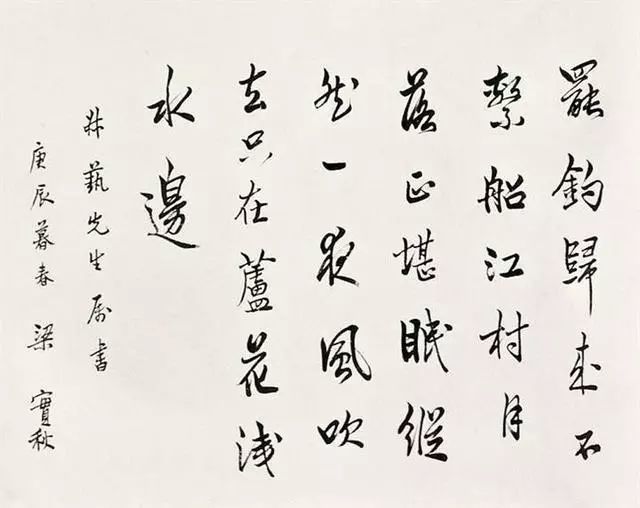 罷釣歸來不
繫船江村月
落正堪眠縱
然一夜風吹
去只在蘆花淺
水邊
井藝先生属書
庚辰暮春 梁實秋